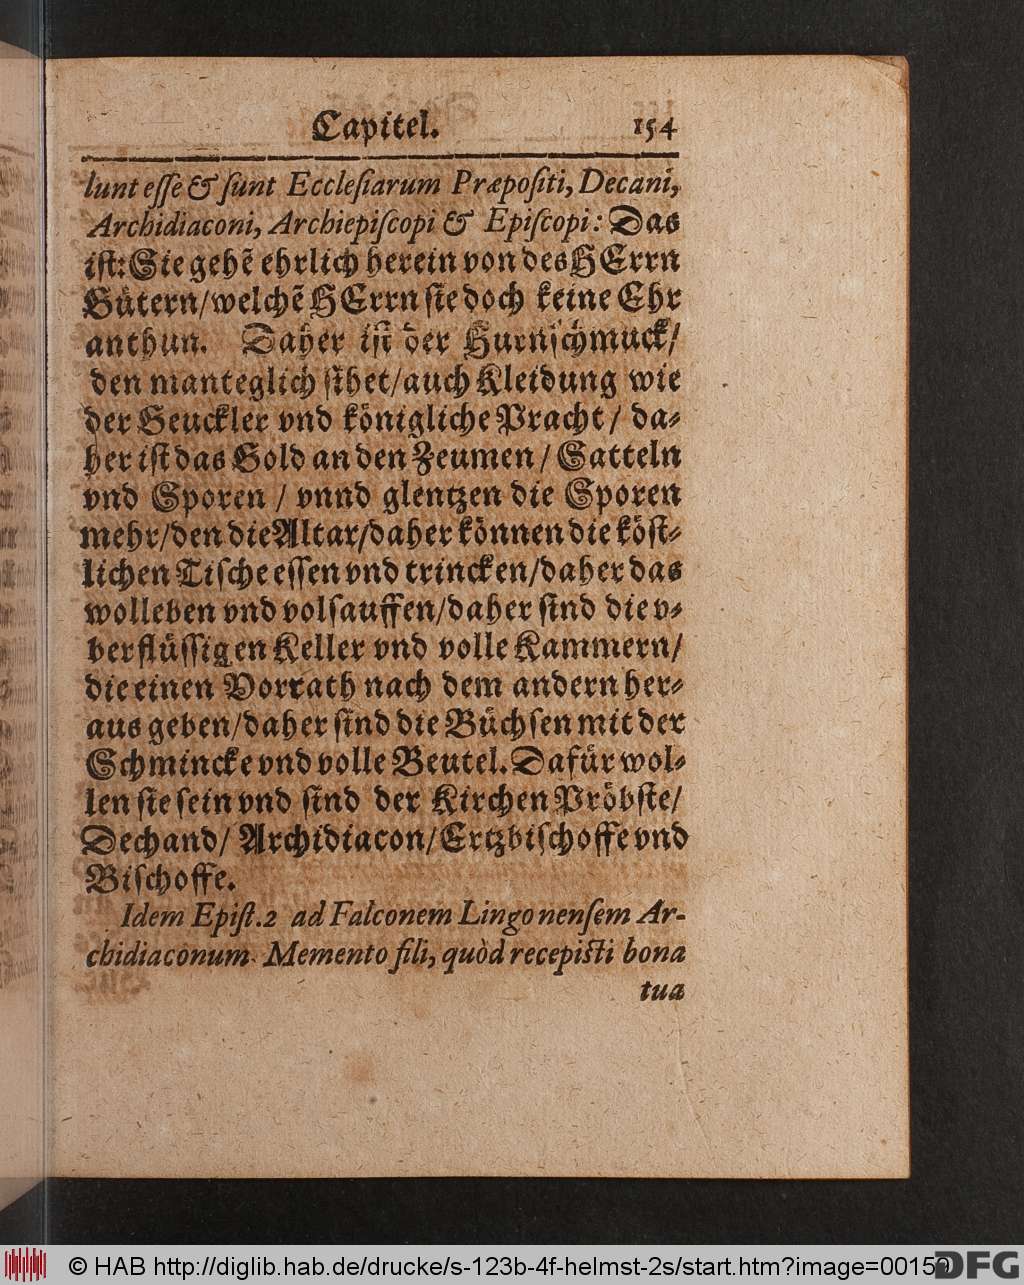 Capitel. 154
lunt eſſe & ſunt Eccleſiarum Præpoſiti, Decani,
Archidiaconi, Archiepiſcopi & Epiſcopi: Das
iſt: Sie gehẽ ehrlich herein von des HErrn
Gütern/welchẽ HErrn ſie doch keine Ehr
anthun. Daher iſt der Hurnſchmuck/
den man teglich ſihet/auch Kleidung wie
der Geuckler vnd königliche Pracht/ da-
her iſt das Gold an den Zeumen/ Satteln
vnd Sporen / vnnd glentzen die Sporen
mehr/den die Altar/daher können die köſt-
lichen Tiſche eſſen vnd trincken/daher das
wolleben vnd volſauffen/daher ſind die v-
berflüſſigen Keller vnd volle Kammern/
die einen Vorrath nach dem andern her-
aus geben/daher ſind die Büchſen mit der
Schmincke vnd volle Beutel. Dafür wol-
len ſie ſein vnd ſind der Kirchen Pröbſte/
Dechand/ Archidiacon/Ertzbiſchoffe vnd
Biſchoffe.
Idem Epiſt.2 ad Falconem Lingonenſem Ar-
chidiaconum. Memento fili, quòd recepiſti bona
tua
© HAB http://diglib.hab.de/drucke/s-123b-4f-helmst-2s/start.htm?image=00159
DFG